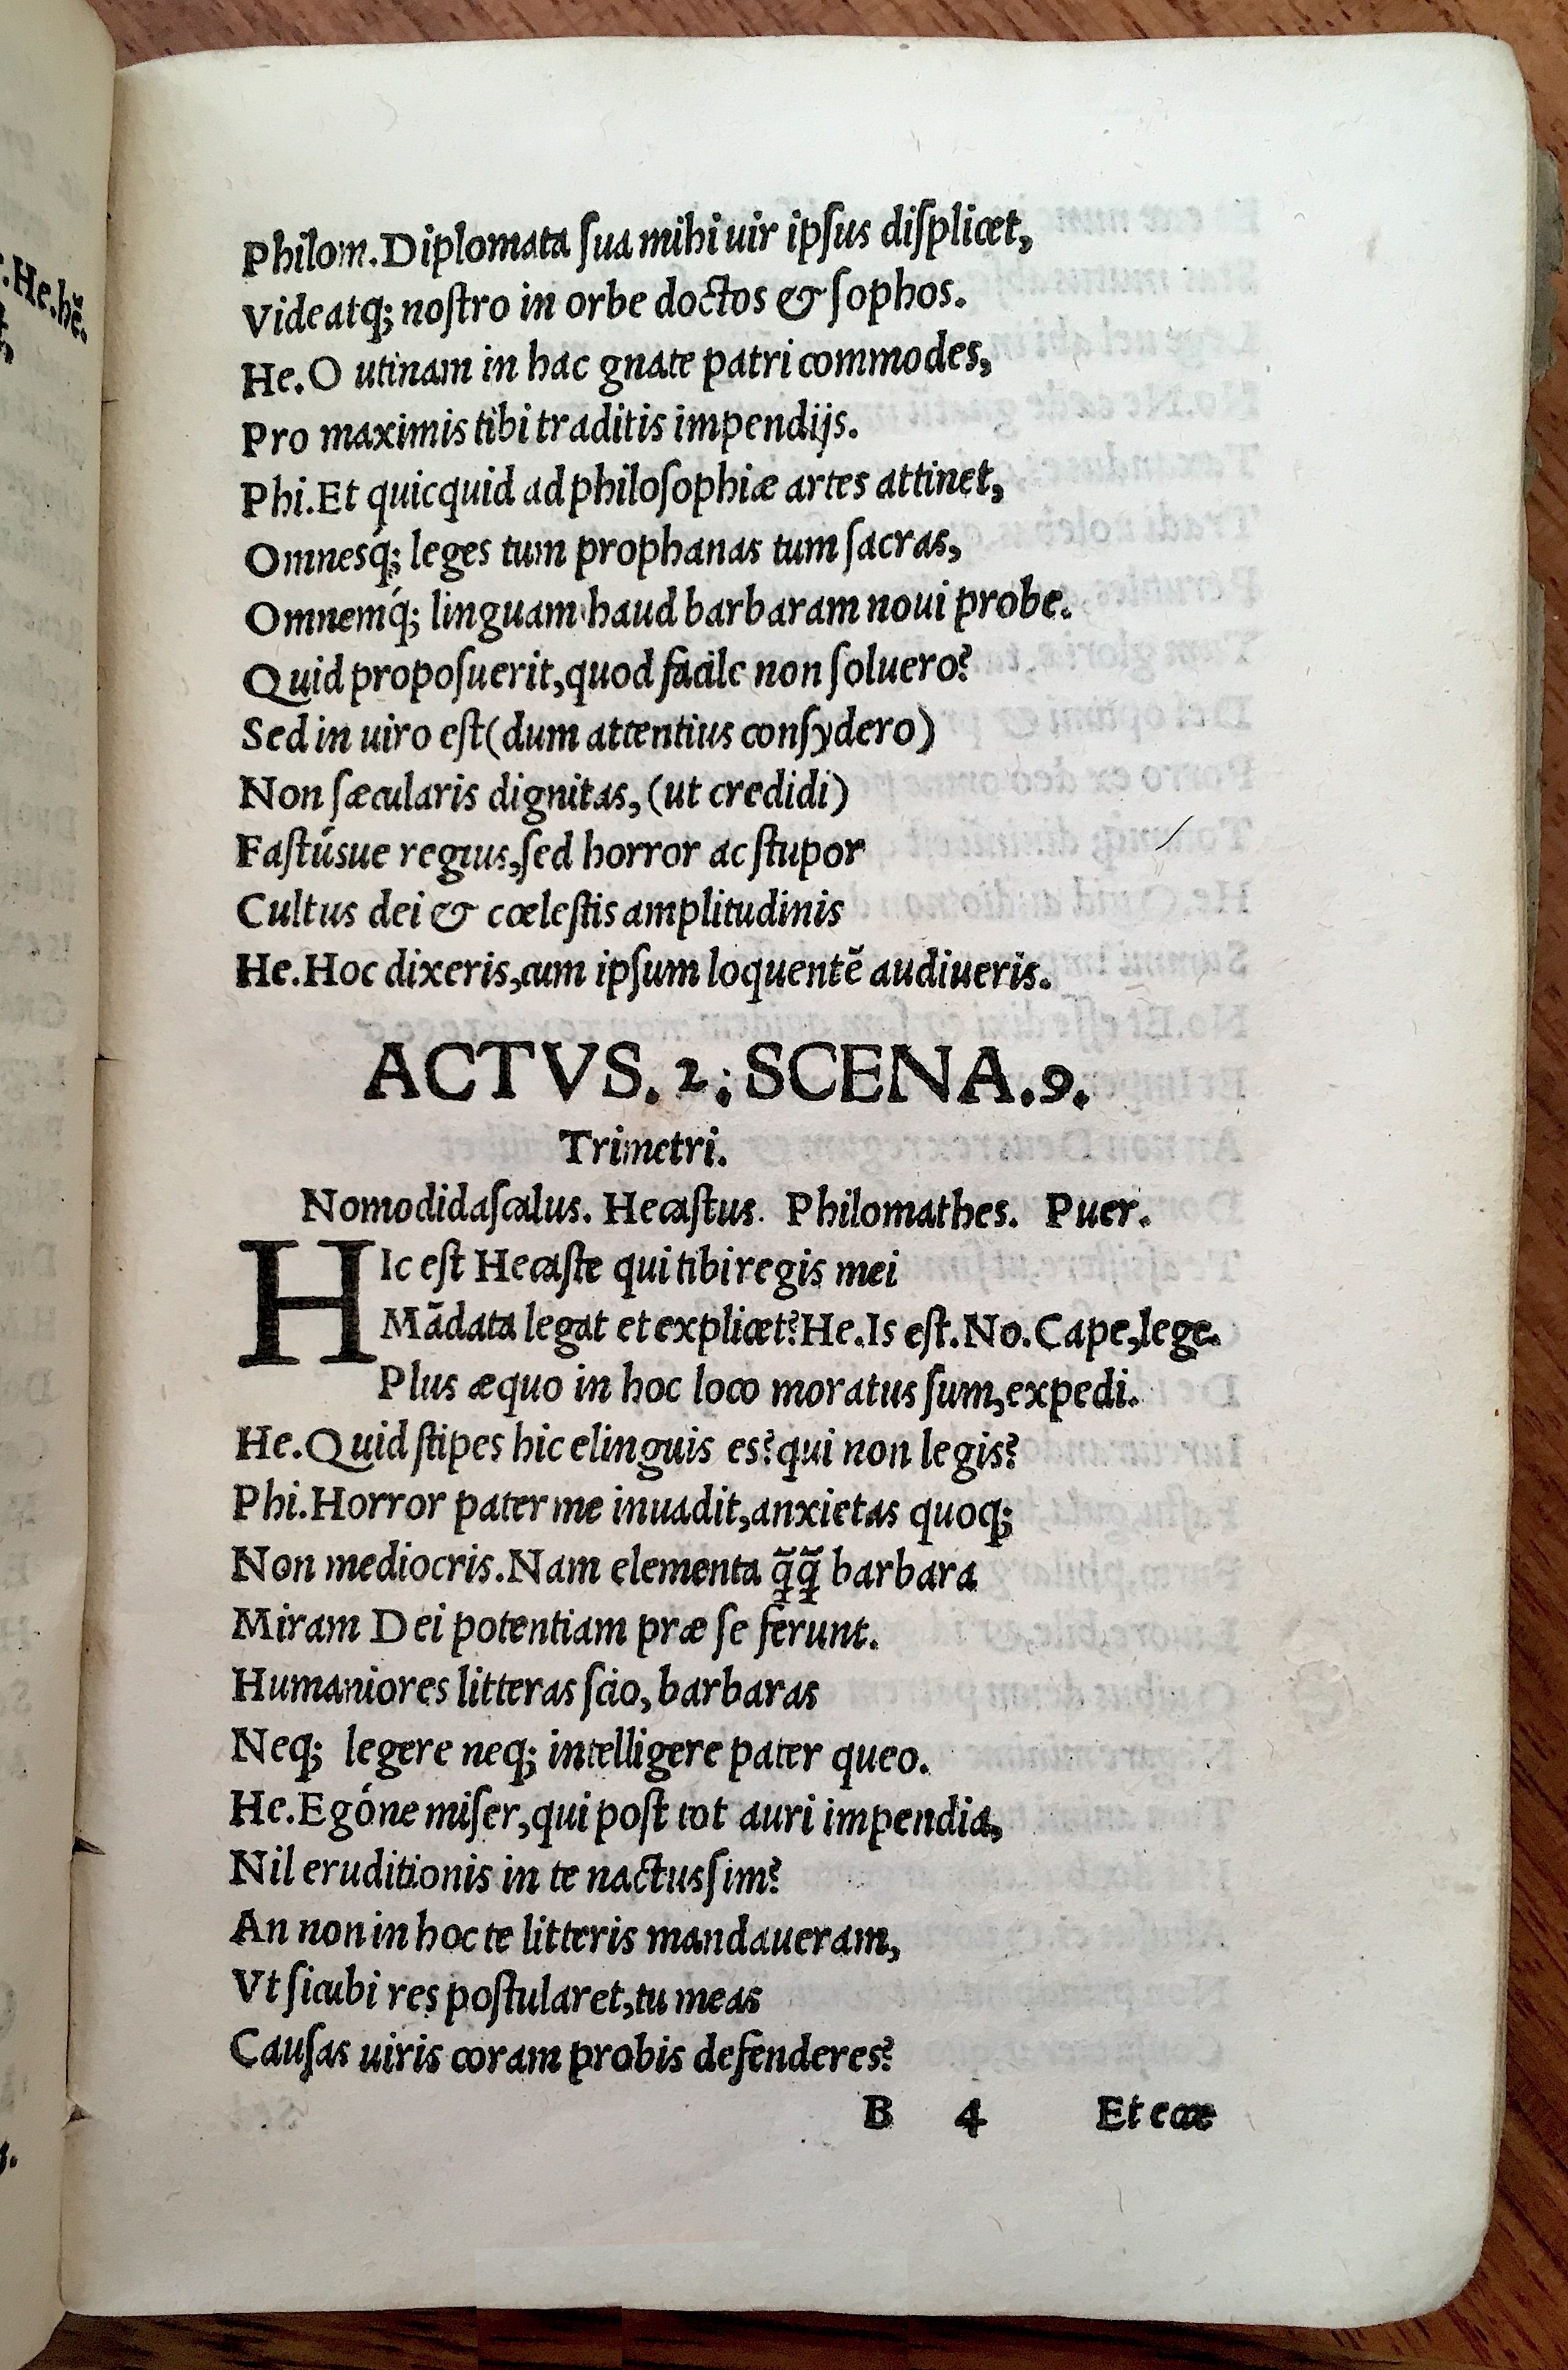 Philom. Diplomata ſua mihi uir ipſus diſplicet,
Videatq; noſtro in orbe doctos & ſophos.
He. O utinam in hac gnate patri commodes,
Pro maximis tibi traditis impendijs.
Phi. Et quicquid ad philoſophiæ artes attinet,
Omnesq́; leges tum prophanas tum ſacras,
Omnemq́; linguam haud barbaram noui probe.
Quid propoſuerit, quod facile non ſoluero?
Sed in uiro eſt (dum attentius conſydero)
Non ſæcularis dignitas, (ut credidi)
Faſtúsue regius, ſed horror ac ſtupor
Cultus dei & cœleſtis amplitudinis
He. Hoc dixeris, cum ipſum loquentē audiueris.
ACTVS. 2; SCENA. 9.
Trimetri.
Nomodidaſcalus. Hecaſtus. Philomathes. Puer.
HIc eſt Hecaſte qui tibi regis mei
Mādata legat et explicet? He. Is eſt. No. Cape, lege.
Plus æquo in hoc loco moratus ſum, expedi.
He. Quid ſtipes hic elinguis es? qui non legis?
Phi. Horror pater me inuadit, anxietas quoq;
Non mediocris. Nam elementa q̃q̃ barbara
Miram Dei potentiam præ ſe ferunt.
Humaniores litteras ſcio, barbaras
Neq; legere neq; intelligere pater queo.
He. Egóne miſer, qui poſt tot auri impendia,
Nil eruditionis in te nactus ſim?
An non in hoc te litteris mandaueram,
Vt ſicubi res poſtularet, tu meas
Cauſas uiris coram probis defenderes?
B 4 Et cœ
.He.hẽ.